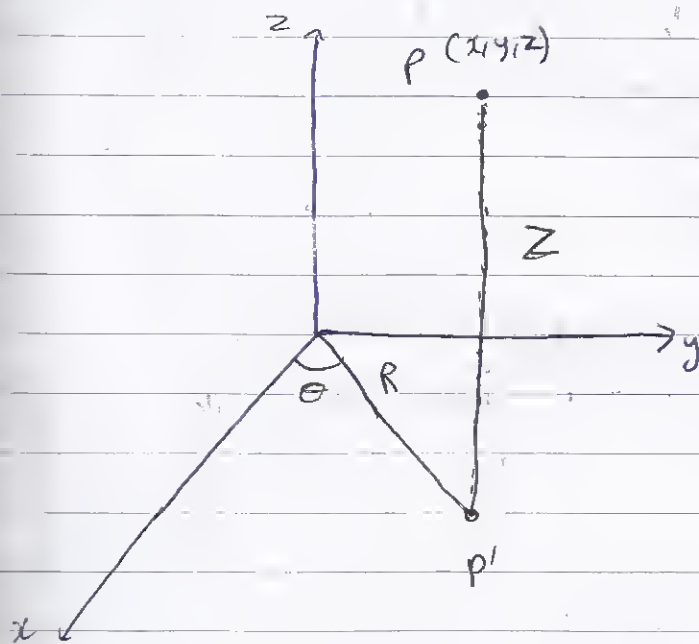 z
P (x,y,z)
Z
y
θ
R
P'
x